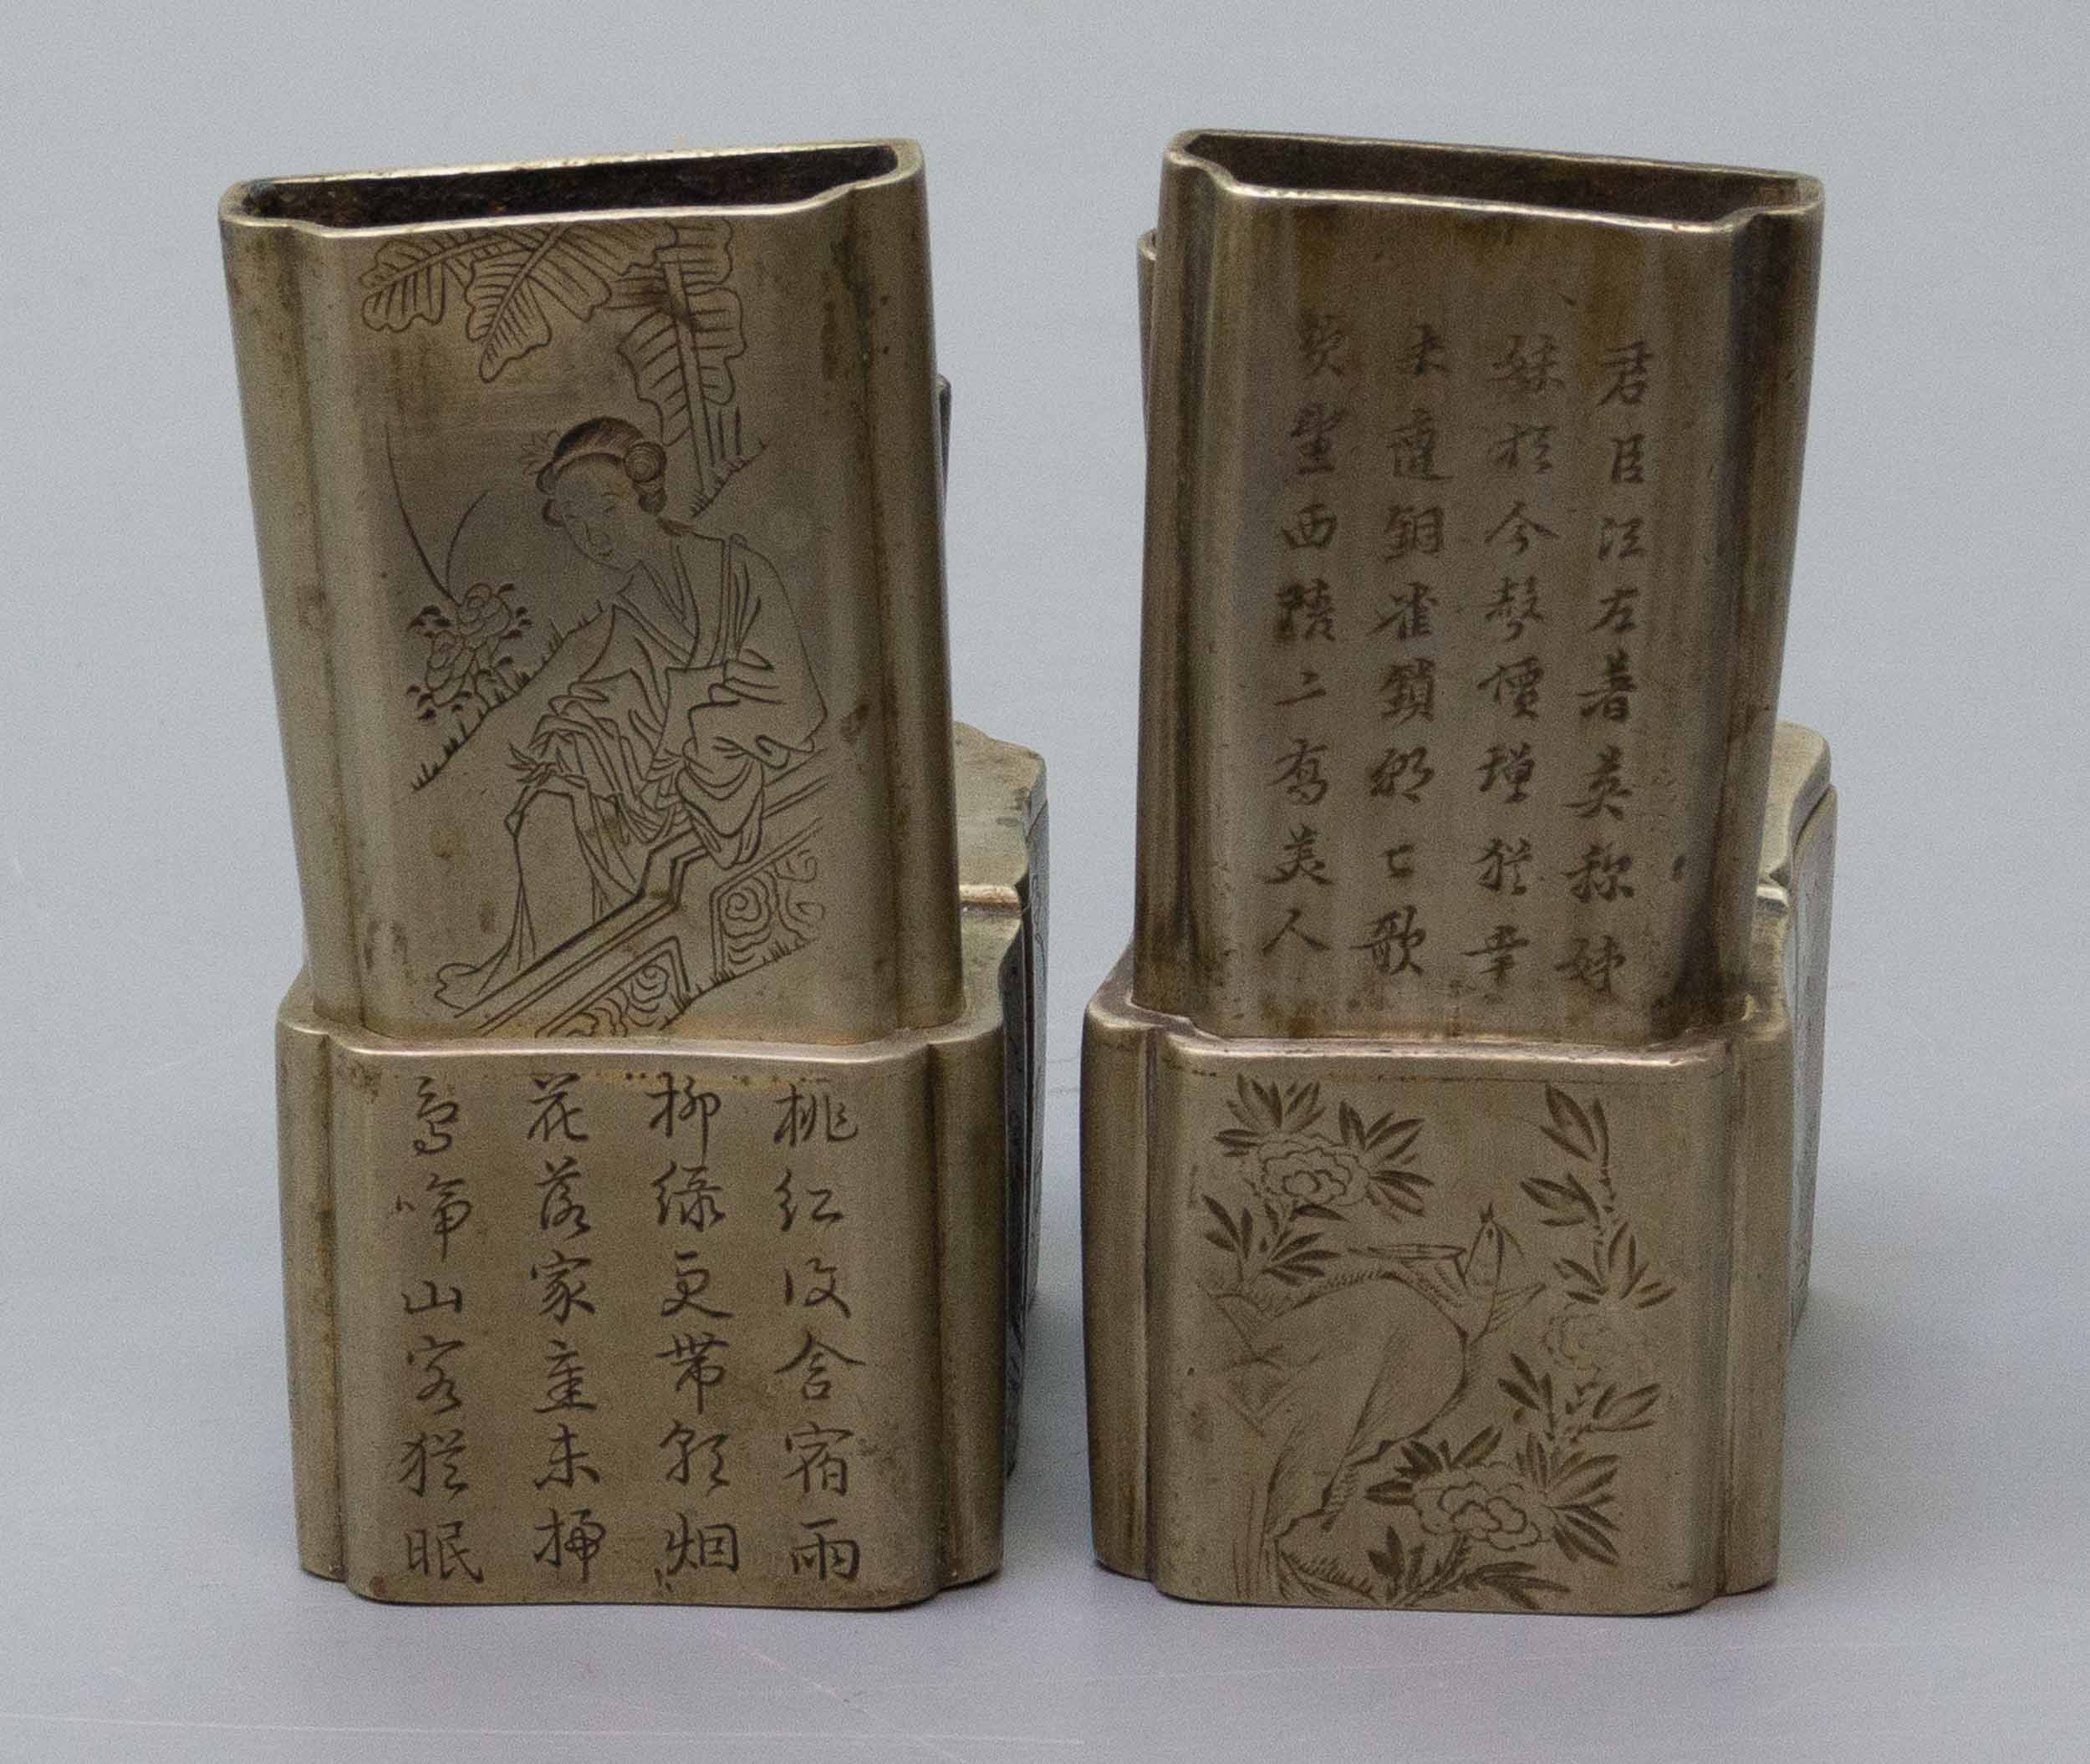 君臣江左著英称姊
妹於今聲價增猶幸
未遭銅雀鎖歌
哭望西陵二喬美人
桃紅復含宿雨
柳綠更帶朝烟
花落家童未掃
鳥啼山客猶眠